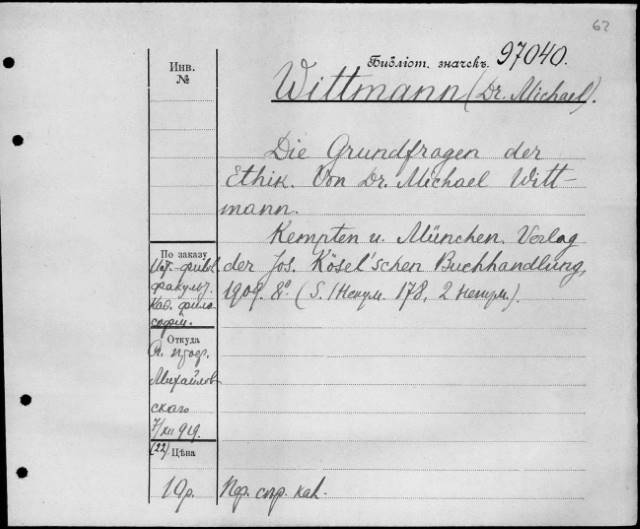 62
Библіот. значекъ 97040.
Инв.
№
Wittmann (Dr. Michael).
Die Grundfragen der
Ethik. Von Dr. Michael Witt-
mann.
Kempten u. München. Verlag
der Jos. Kösel'schen Buchhandlung,
1909. 8° (S. 1 ненум. 178, 2 ненум.).
По заказу
Ист.-филол.
факульт.
Каб. фило-
софіи.
Откуда
проф.
Михайлов-
скаго
7/XII 919.
(22) Цѣна
10р.